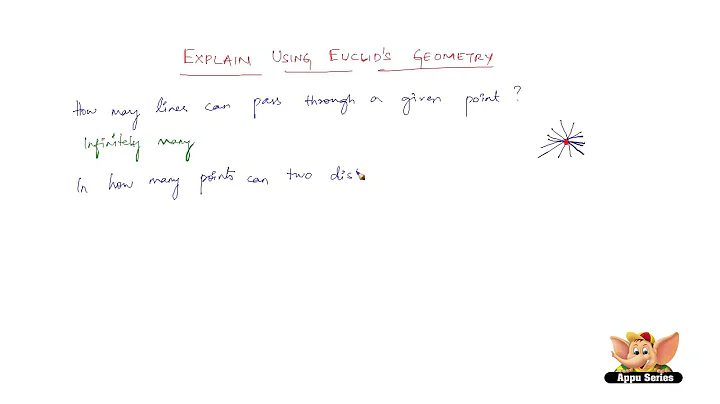 EXPLAIN USING EUCLID'S GEOMETRY
How may lines can pass through a given point ?
Infinitely many
In how many points can two dist
Appu Series